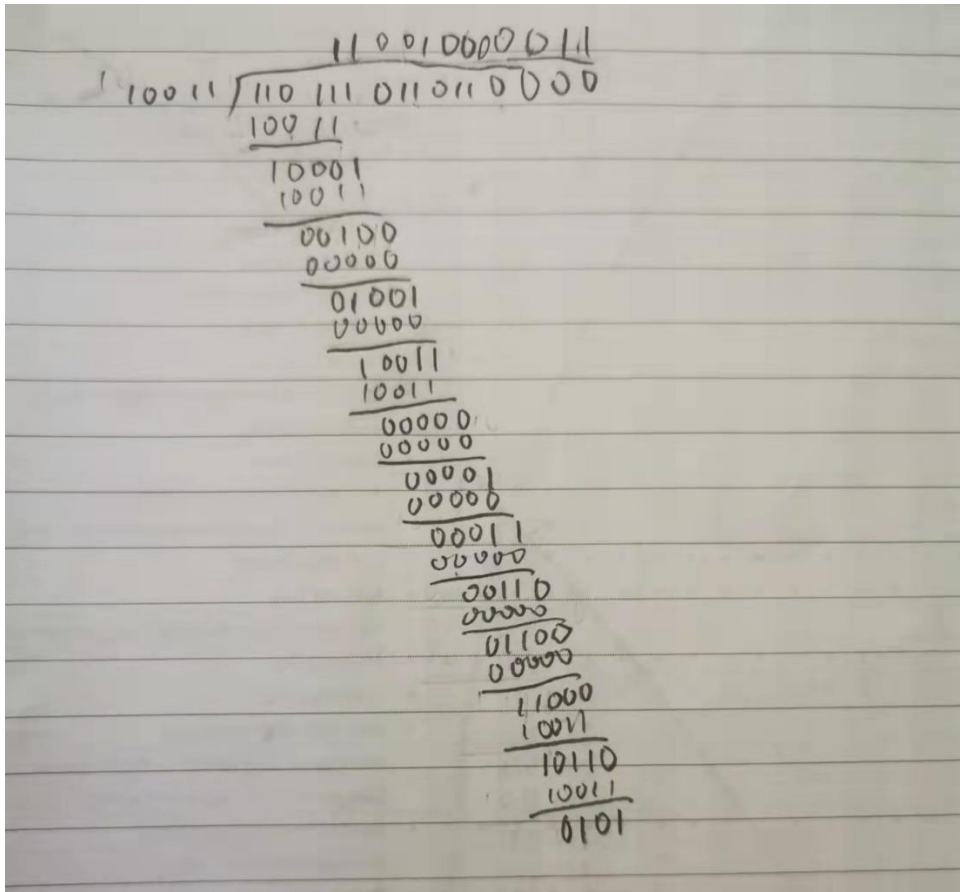 110010000011
10011 110 111 0110110 000
10011
10001
10011
00100
00000
01001
00000
10011
10011
00000
00000
00001
00000
00011
00000
00110
00000
01100
00000
11000
10011
10110
10011
0101